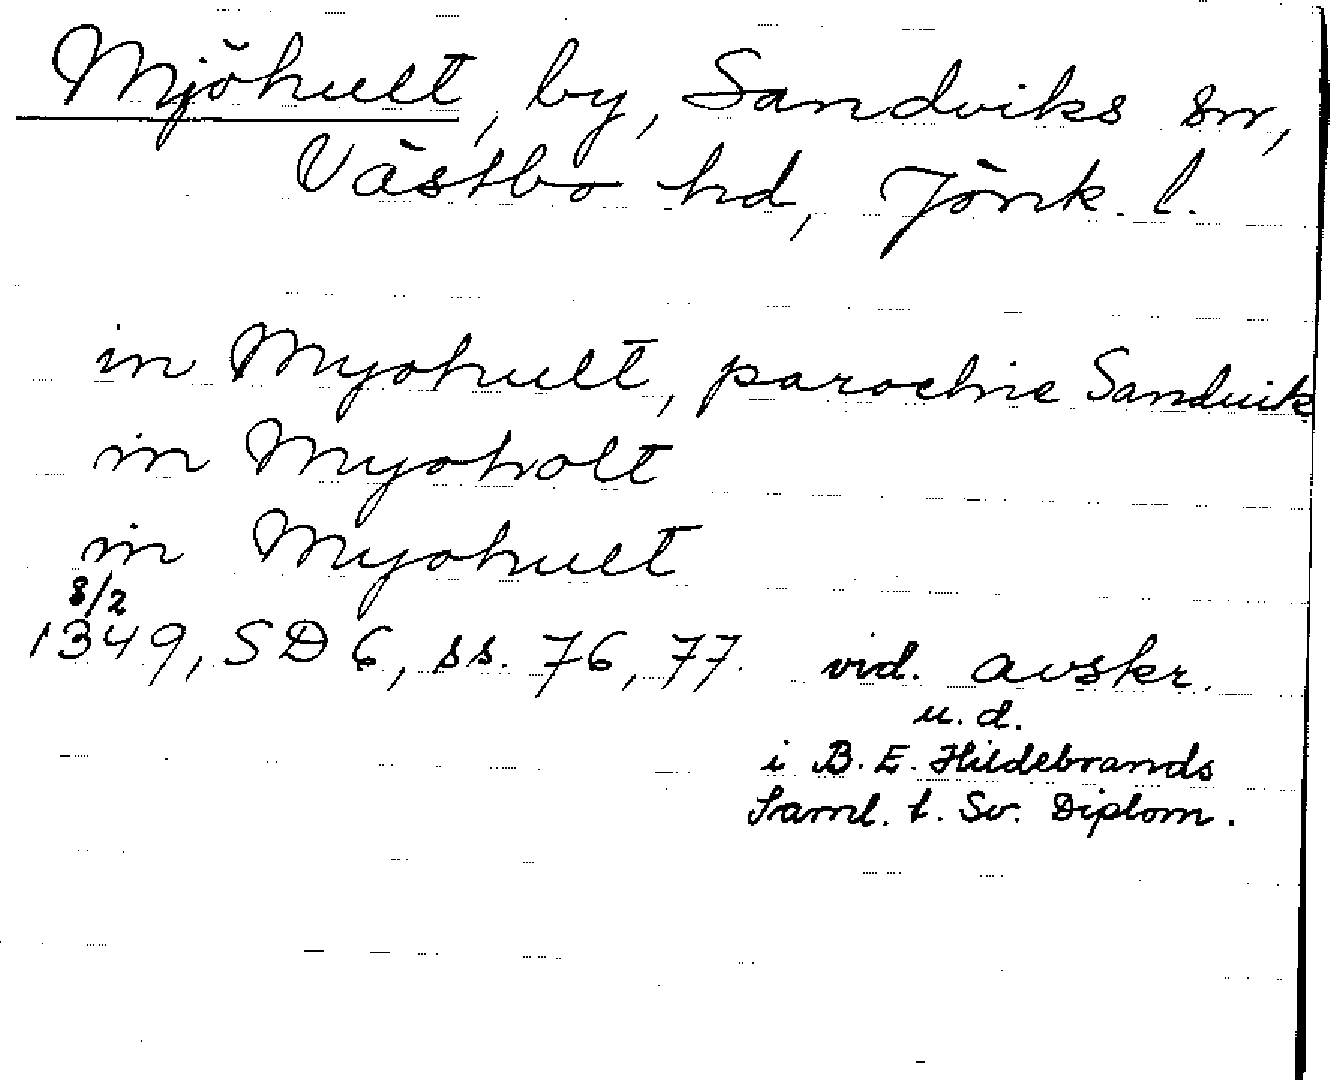 Mjöhult, by, Sandviks sn,
Västbo hd, Jönk. l.
in Myohult, parochie Sanduik
in Myoholt
in Myohult
8/2
1349, SD 6, ss. 76, 77. vid. avskr.
u. d.
i B. E. Hildebrands
Saml. t. Sv. Diplom.